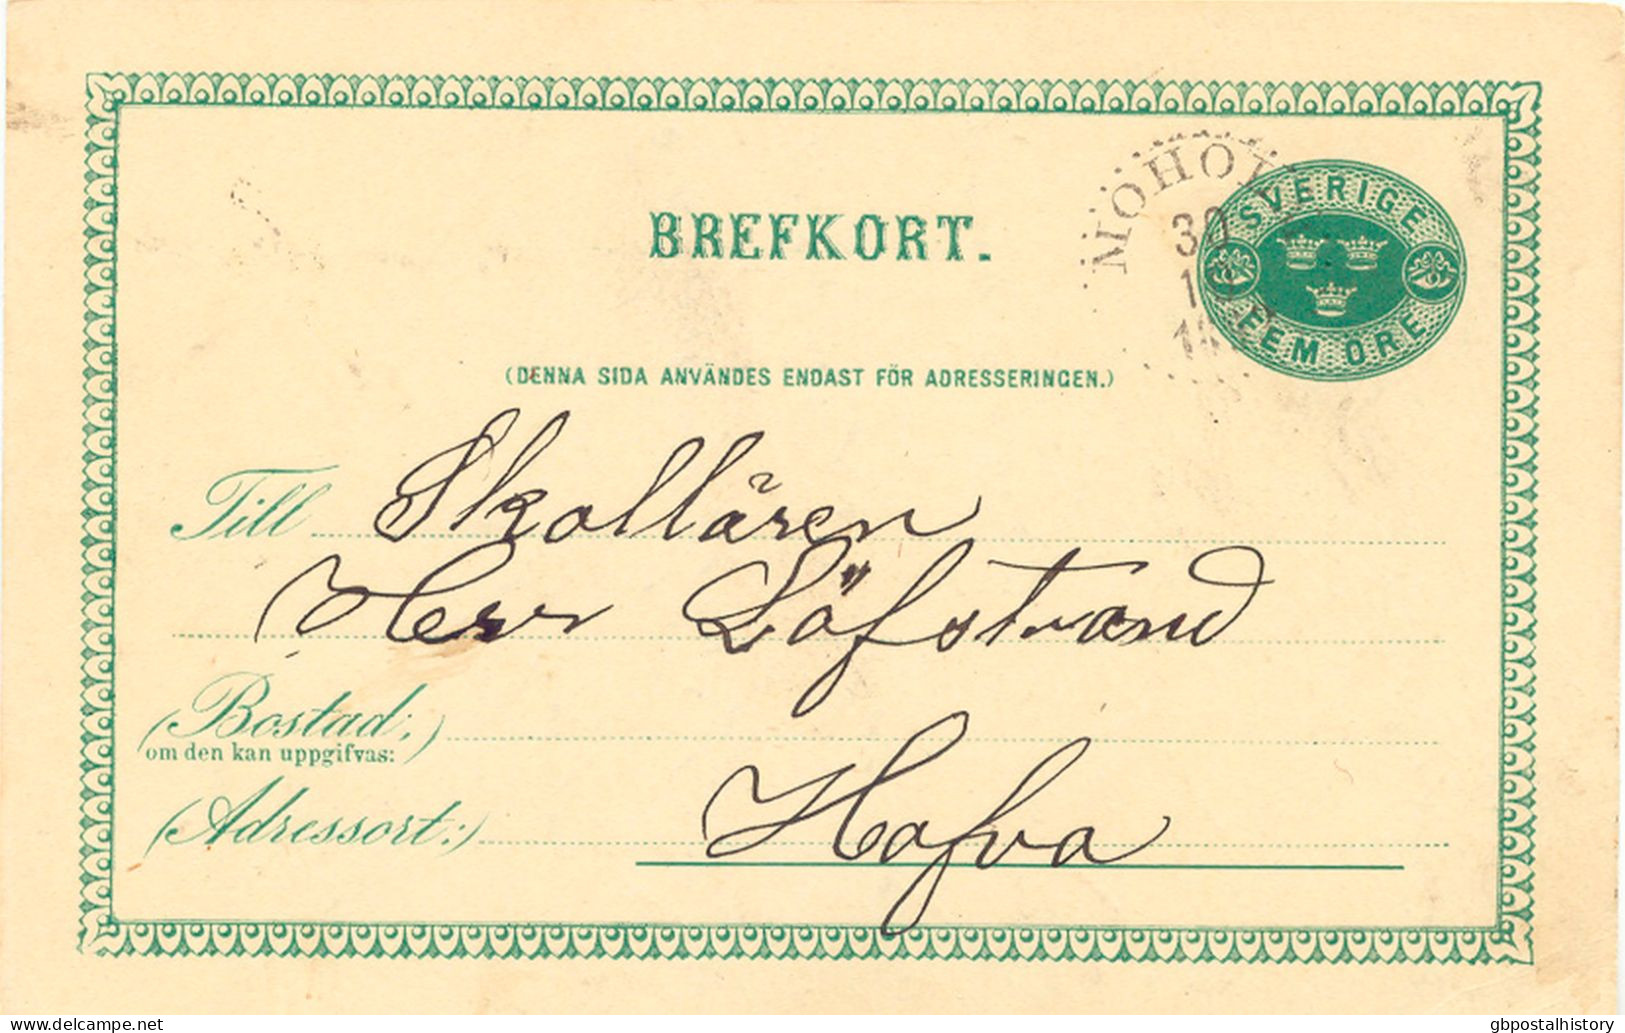 BREFKORT.
MOHOL
30
SVERIGE
FEM ÖRE
(DENNA SIDA ANVÄNDES ENDAST FÖR ADRESSERINGEN.)
Till Skolläraren
Herr Löfstrand
(Bostad:)
om den kan uppgifvas:
(Adressort:) Hafva
gbpostalhistory